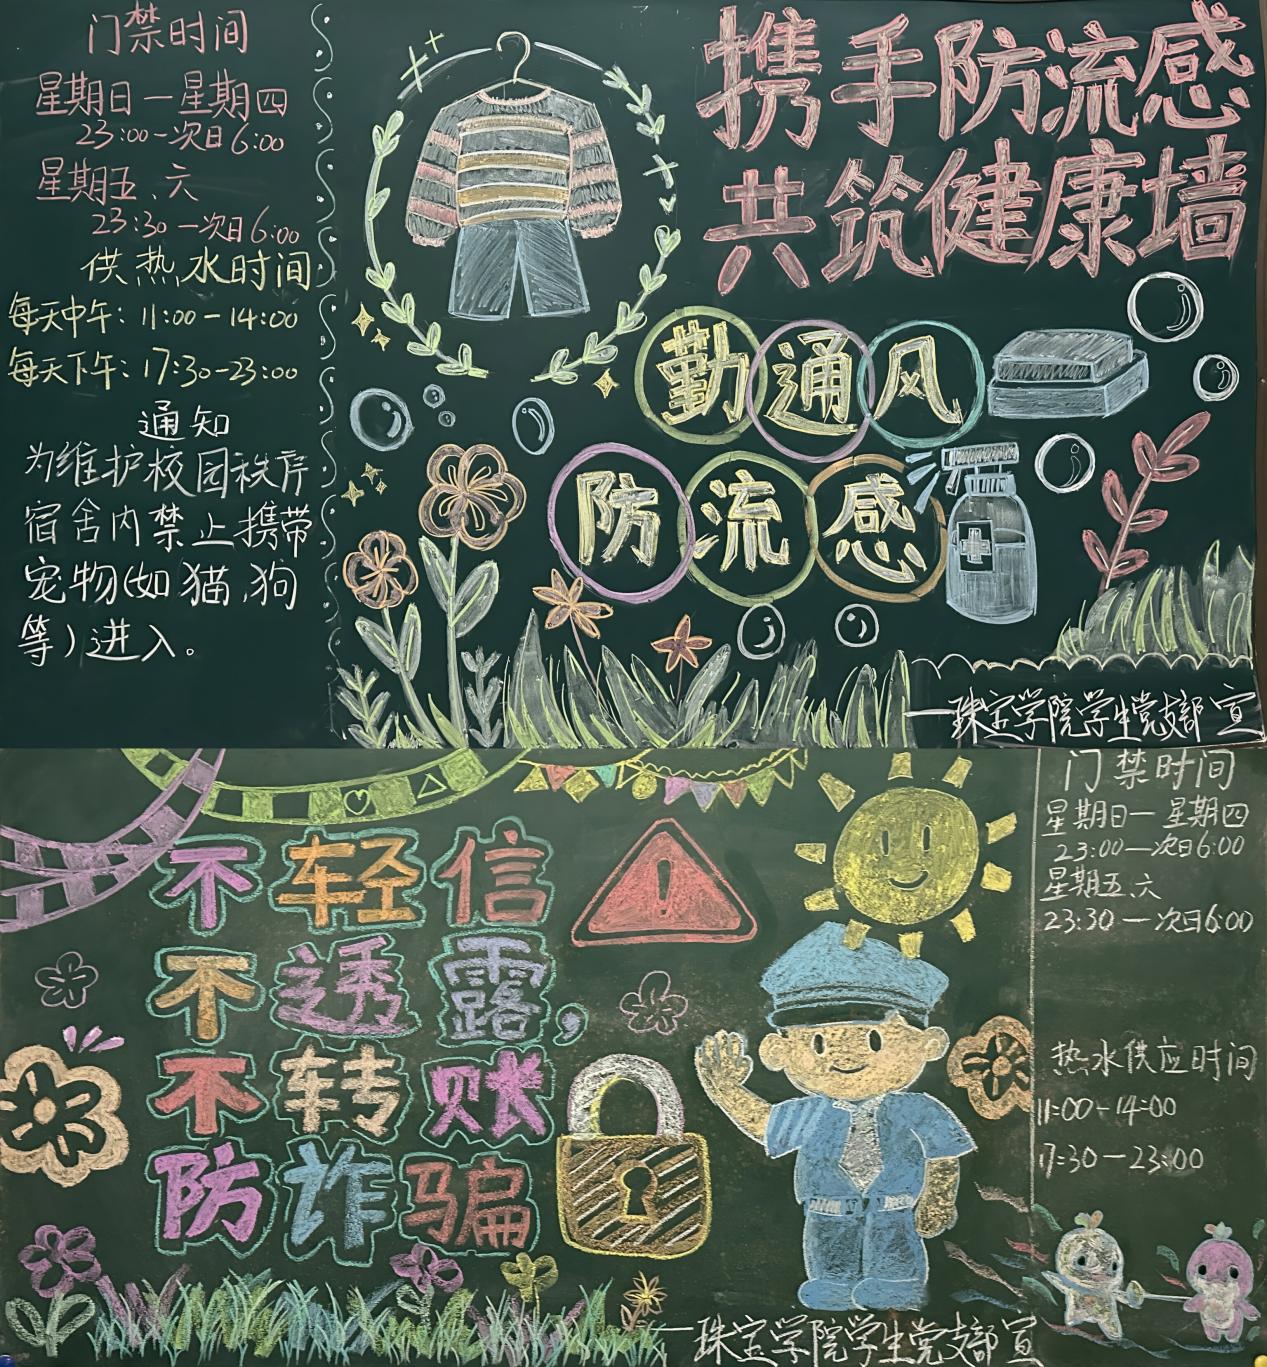 门禁时间
星期日一星期四
23:00一次日6:00
星期五、六
23:30一次日6:00
供热水时间
每天中午: 11:00-14:00
每天下午: 17:30-23:00
通知
为维护校园秩序
宿舍内禁止携带
宠物(如猫、狗
等)进入。
携手防流感
共筑健康墙
勤通风
防流感
一珠宝学院学生党支部宣
不轻信
不透露,
不转账
防诈骗
一珠宝学院学生党支部宣
门禁时间
星期日一星期四
23:00一次日6:00
星期五、六
23:30一次日6:00
热水供应时间
11:00-14:00
17:30-23:00